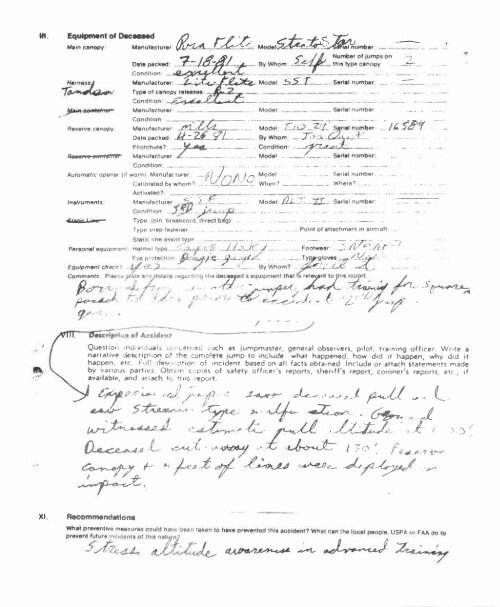 III. Equipment of Deceased
Main canopy: Manufacturer Para Flite Model Strato Star Serial number
Date packed: 7-18-81 By Whom: Self Number of jumps on this type canopy 2
Condition: excellent
Harness: Manufacturer: Model: SST Serial number:
Tandem Type of canopy releases: R-2
Condition: Excellent
Main container: Manufacturer: Model: Serial number:
Condition:
Reserve canopy: Manufacturer: Mills Model: Serial number: 16589
Date packed: 4-26-81 By Whom:
Pilotchute? yes Condition: great
Reserve container: Manufacturer: Model: Serial number:
Condition:
Automatic opener (if worn) Manufacturer: NONE Model: Serial number:
Calibrated by whom? When? Where?
Activated?:
Instruments: Manufacturer: Model: ALT II Serial number:
Condition: jump
Static Line: Type: (pin, breakcord, direct bag)
Type snap fastener Point of attachment in aircraft:
Static line assist type
Personal equipment: Helmet type Footwear:
Eye protection: Type gloves
Equipment check? yes By Whom?
Comments. Please state any details regarding the deceased's equipment that is relevant to this report.
jumper, had training for square
VIII. Description of Accident
Question individuals concerned such as jumpmaster, general observers, pilot, training officer. Write a
narrative description of the complete jump to include: what happened, how did it happen, why did it
happen, etc. Full description of incident based on all facts obtained. Include or attach statements made
by various parties. Obtain copies of safety officer's reports, sheriff's report, coroner's reports, etc., if
available, and attach to this report.
Experienced jumper saw deceased pull and
saw streamer type malfunction. Ground
witnesses estimate pull altitude at
Deceased cut away at about 150'. Reserve
canopy + feet of lines were deployed on
impact.
XI. Recommendations
What preventive measures could have been taken to have prevented this accident? What can the local people, USPA or FAA do to
prevent future incidents of this nature?
Stress altitude awareness in advanced training